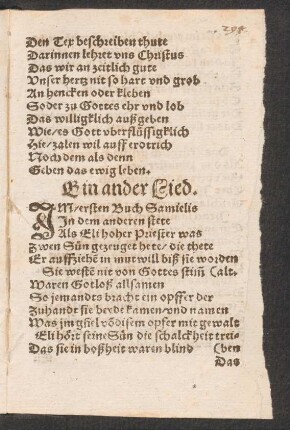 298.
Den Tex beschreiben thute
Darinnen lehret vns Christus
Das wir an zeitlich gute
Vnser hertz nit so hart vnd grob
An hencken oder kleben
So der zu Gottes ehr vnd lob
Das willigklich auß geben
Wie/es Gott vberflüssigklich
Hie/zalen wil auff erdtrich
Noch dem als denn
Geben das ewig leben.
Ein ander Lied.
IM/ersten Buch Samielis
In dem anderen stete
Als Eli hoher Priester was
Zwen Sün gezeuget hete/ die thete
Er auffziehẽ in mut will biß sie worden
Sie westẽ nit von Gottes stim̃ (alt.
Waren Gotloß allsamen
So jemandts bracht ein opffer der
Zuhandt sie beyde kamen/vnd namen
Was jm gfiel võ disem opfer mit gewalt
Eli hört seine Sün die schalckheit trei-
Das sie in boßheit waren blind (ben
Das